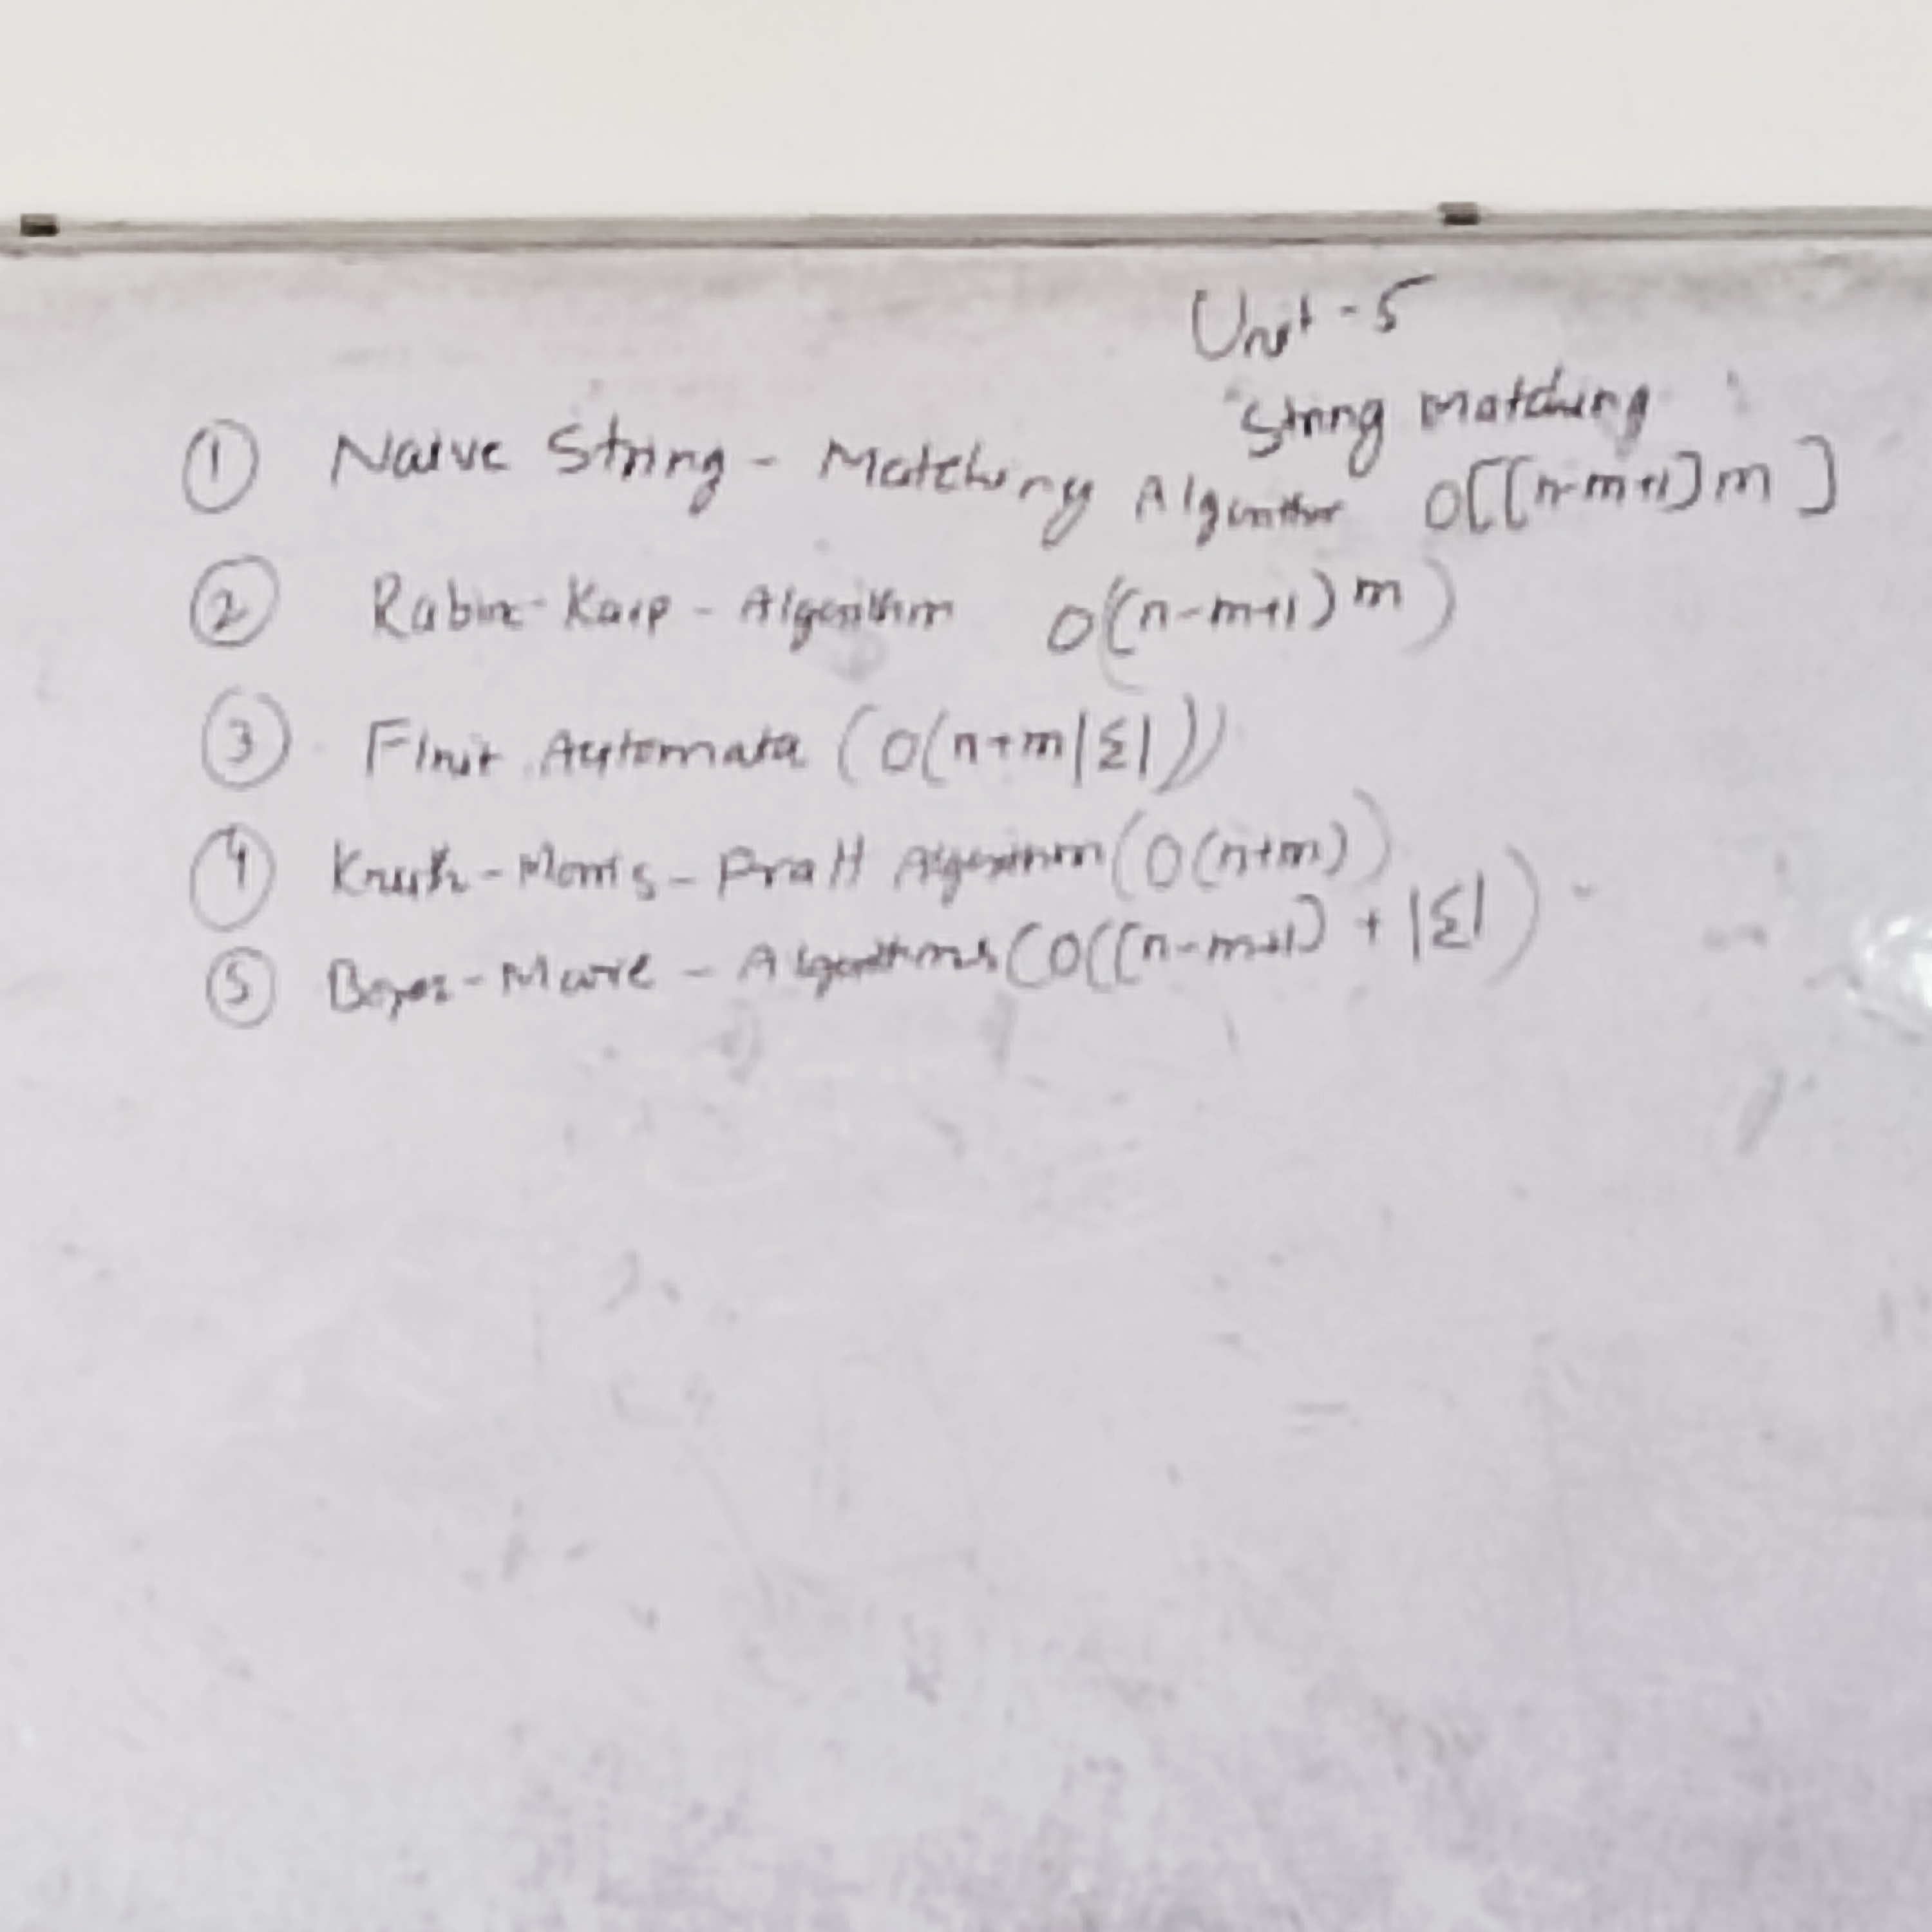 Unit - 5
String Matching
① Naive String - Matching Algorithm O[[n-m+1]m]
② Rabin-Karp - Algorithm O((n-m+1)m)
③ Finit Automata (O(n+m|Σ|))
④ Knuth-Morris-Pratt Algorithm (O(n+m))
⑤ Boyer-Moore - Algorithms (O([n-m+1) + |Σ|)